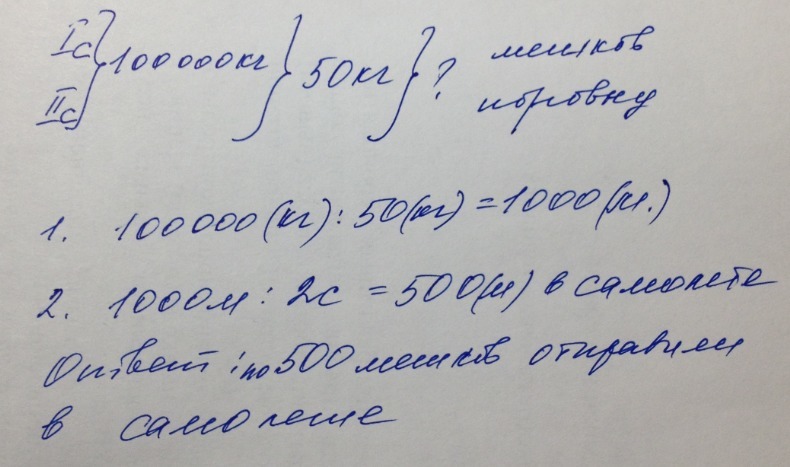 Iс } 100000кг } 50кг } ? мешков
IIс поровну
1. 100000(кг) : 50(кг) = 1000(м.)
2. 1000м : 2с = 500(м) в самолете
Ответ : по 500 мешков отправили
в самолете